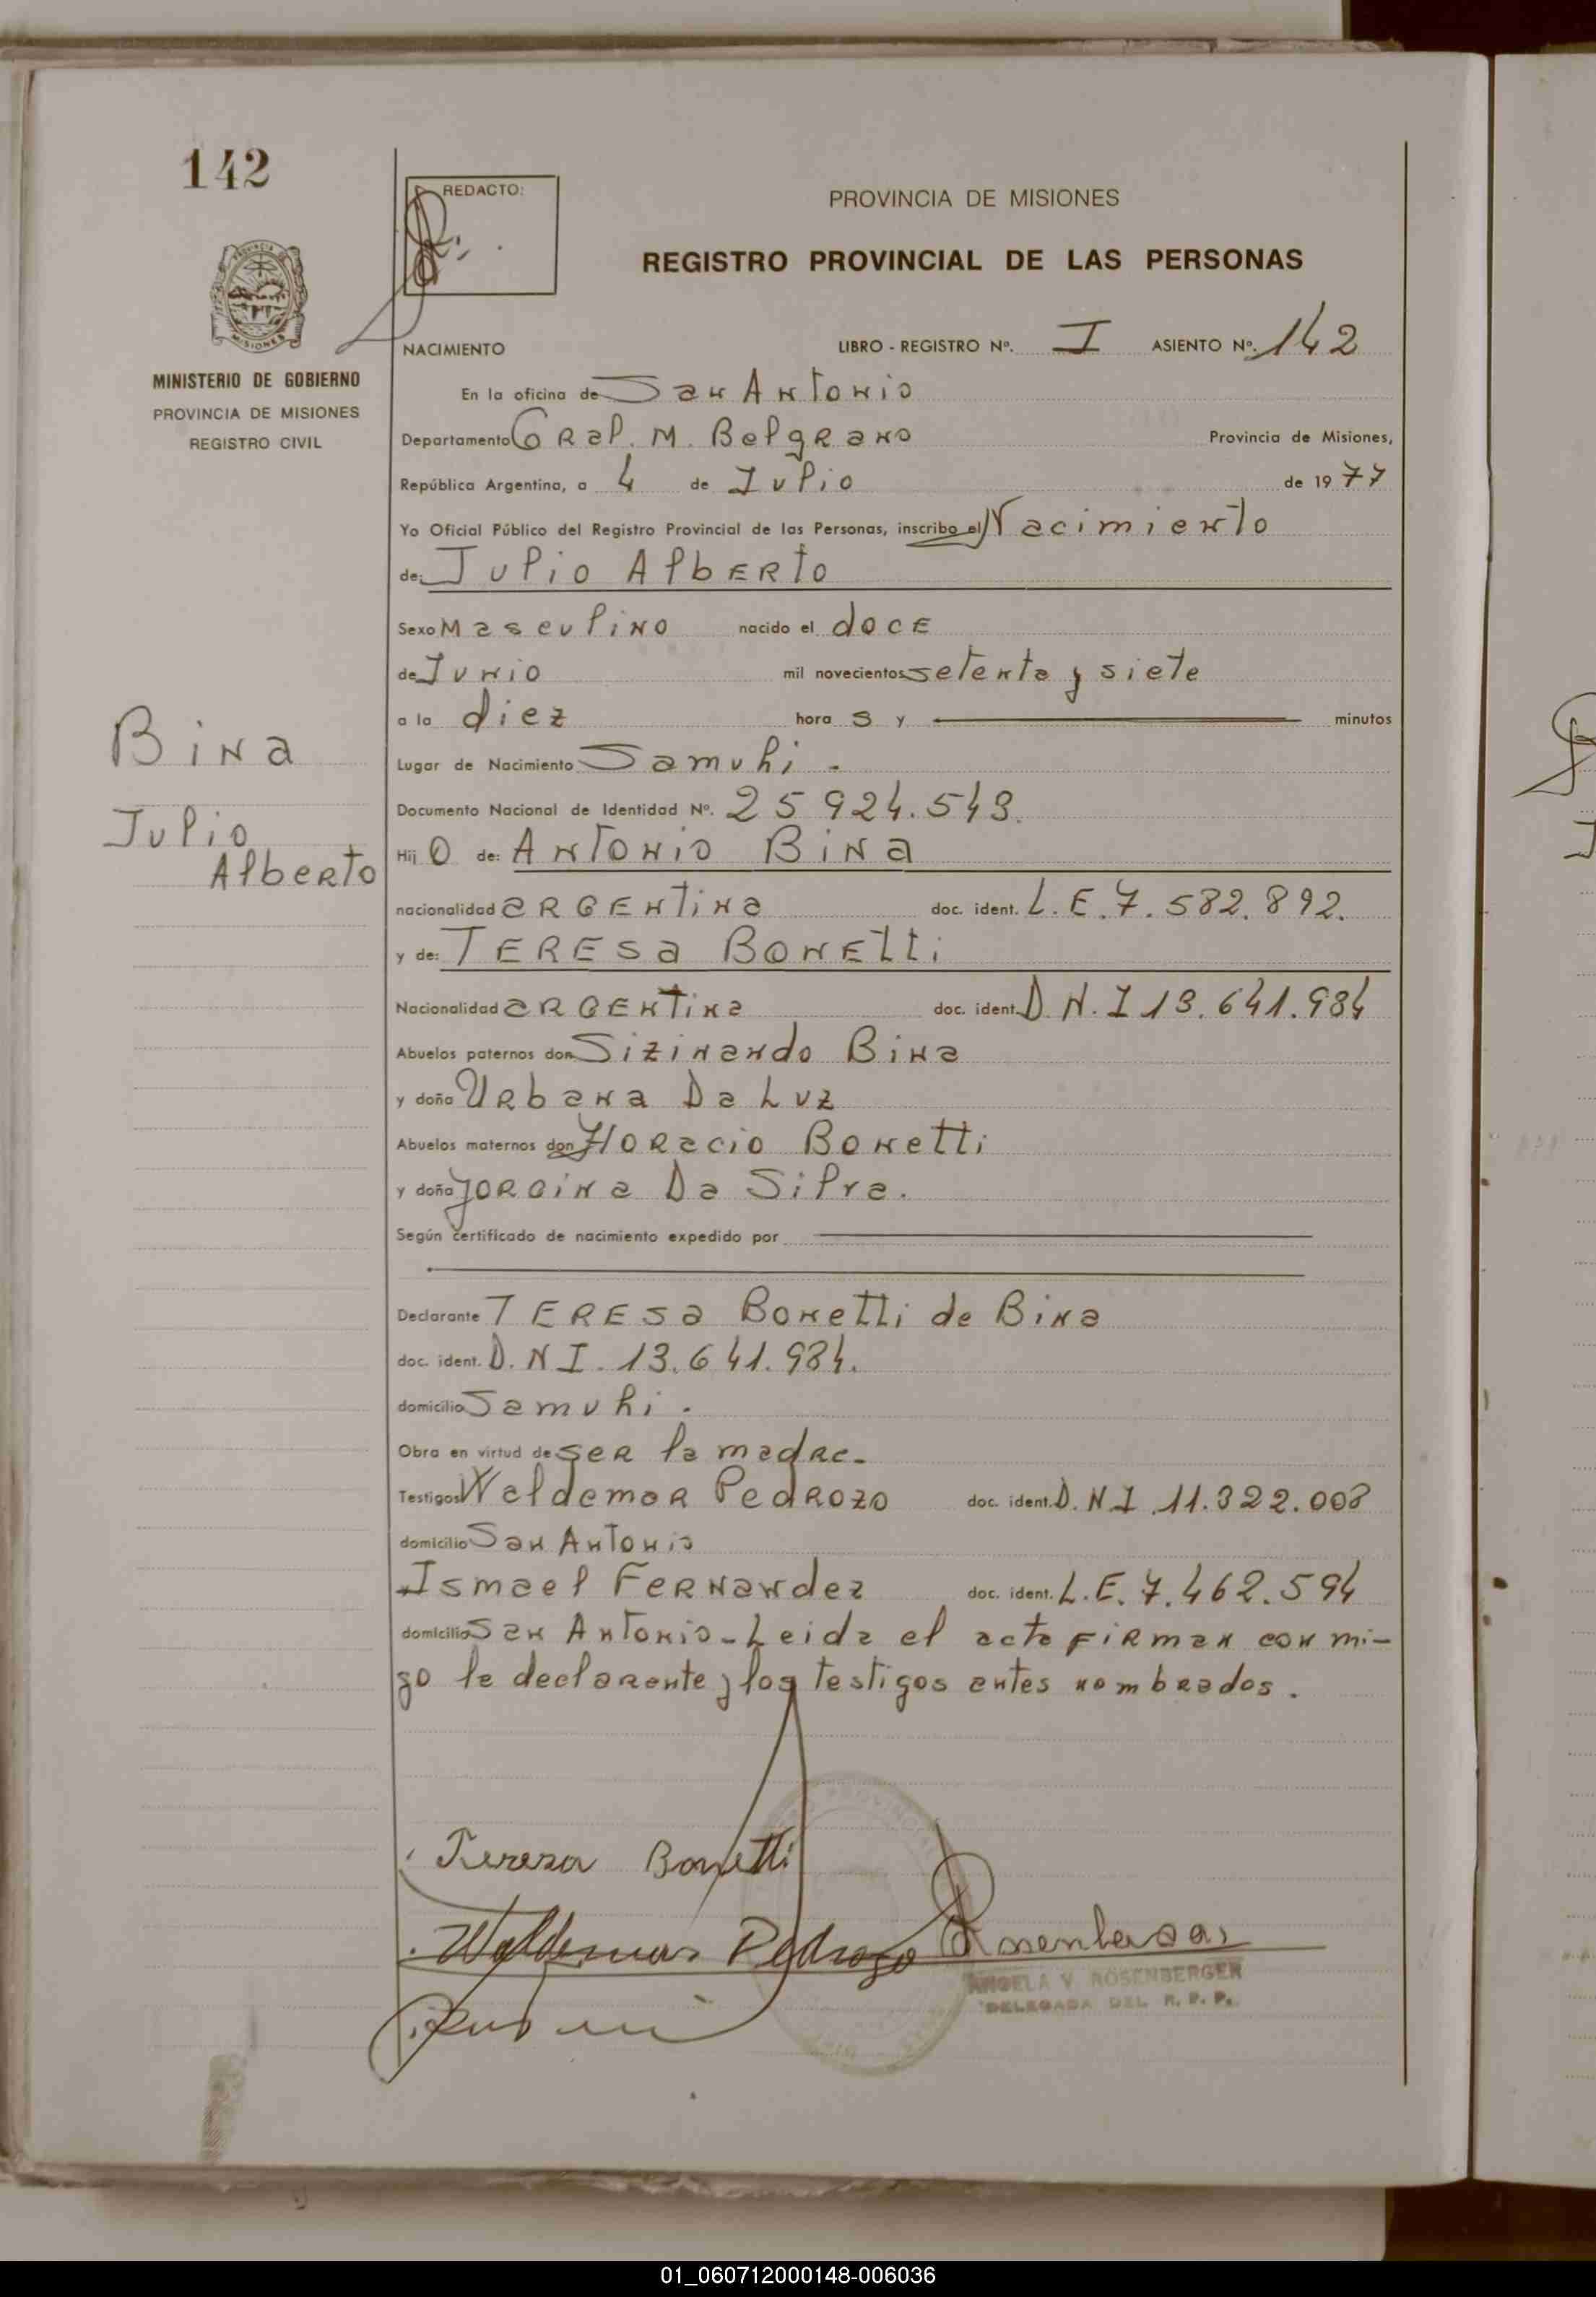 142
REDACTO:
PROVINCIA DE MISIONES
REGISTRO PROVINCIAL DE LAS PERSONAS
PROVINCIA
MISIONES
MINISTERIO DE GOBIERNO
PROVINCIA DE MISIONES
REGISTRO CIVIL
NACIMIENTO LIBRO - REGISTRO Nº. I ASIENTO Nº. 142
En la oficina de San Antonio
Departamento Gral. M. Belgrano Provincia de Misiones,
República Argentina, a 4 de Julio de 1977
Yo Oficial Público del Registro Provincial de las Personas, inscribo el Nacimiento
de: Julio Alberto
Sexo Masculino nacido el doce
de Junio mil novecientos setenta y siete
a la diez hora s y minutos
Bina
Julio
Alberto
Lugar de Nacimiento Samuhi.
Documento Nacional de Identidad Nº. 25 924.543.
Hij O de: Antonio Bina
nacionalidad argentina doc. ident. L.E. 7.582.892.
y de: Teresa Bonetti
Nacionalidad argentina doc. ident. D.N.I 13.641.984
Abuelos paternos don Sizinando Bina
y doña Urbana Da Luz
Abuelos maternos don Horacio Bonetti
y doña Jorgina Da Silva.
Según certificado de nacimiento expedido por
Declarante Teresa Bonetti de Bina
doc. ident. D.N I. 13.641.984.
domicilio Samuhi.
Obra en virtud de ser la madre.
Testigos Waldemar Pedrozo doc. ident. D.N.I 11.322.008
domicilio San Antonio
Ismael Fernandez doc. ident. L.E. 7.462.594
domicilio San Antonio - Leida el acta firman con mi-
go la declarante y los testigos antes nombrados.
Teresa Bonetti
Waldemar Pedrozo
ANGELA V. ROSENBERGER
DELEGADA DEL R. P. P.
01_060712000148-006036